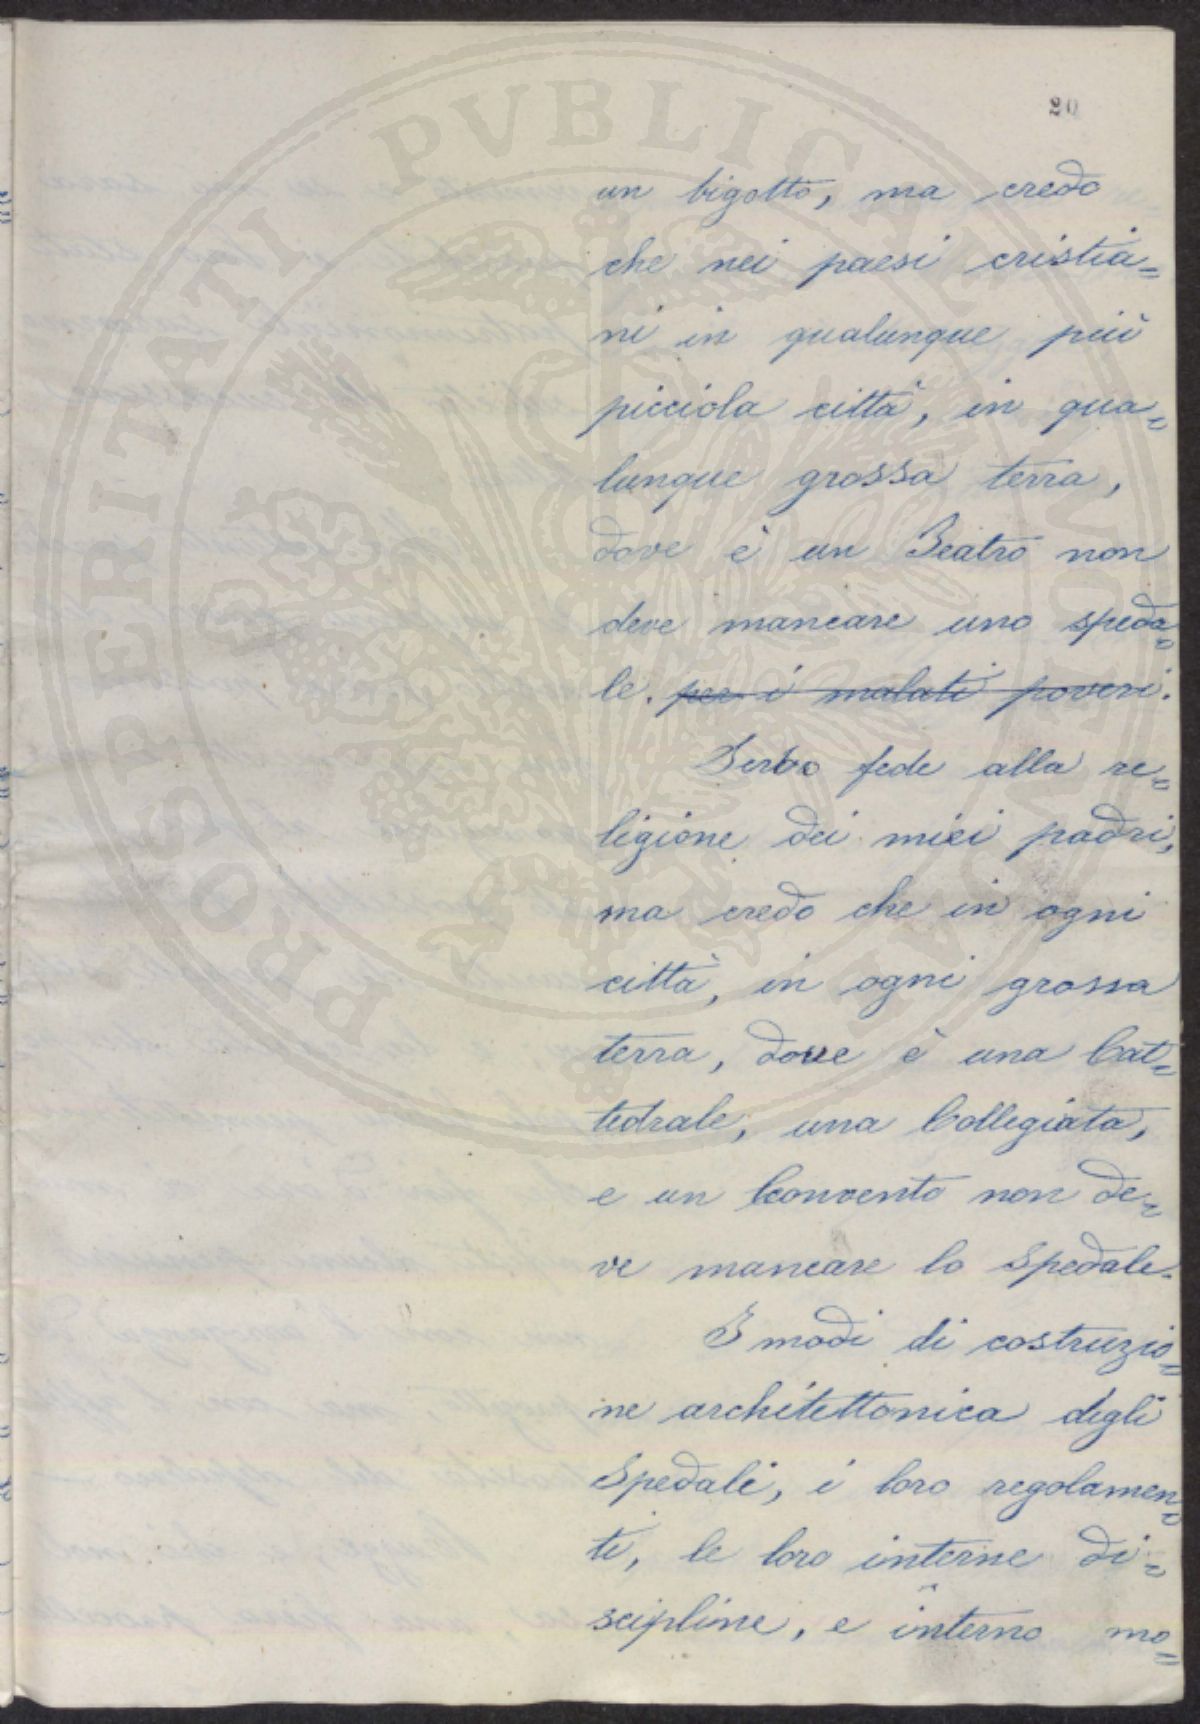 20
un bigotto, ma credo
che nei paesi cristia=
ni in qualunque più
picciola città, in qua=
lunque grossa terra,
dove è un Teatro non
deve mancare uno speda=
le. per i malati poveri.
Serbo fede alla re=
ligione dei miei padri,
ma credo che in ogni
città, in ogni grossa
terra, dove è una Cat=
tedrale, una Collegiata,
e un Convento non de=
ve mancare lo Spedale.
I modi di costruzio=
ne architettonica degli
Spedali, i loro regolamen=
ti, le loro interne di=
scipline, e interno mo=
PROSPERITATI PVBLICAE